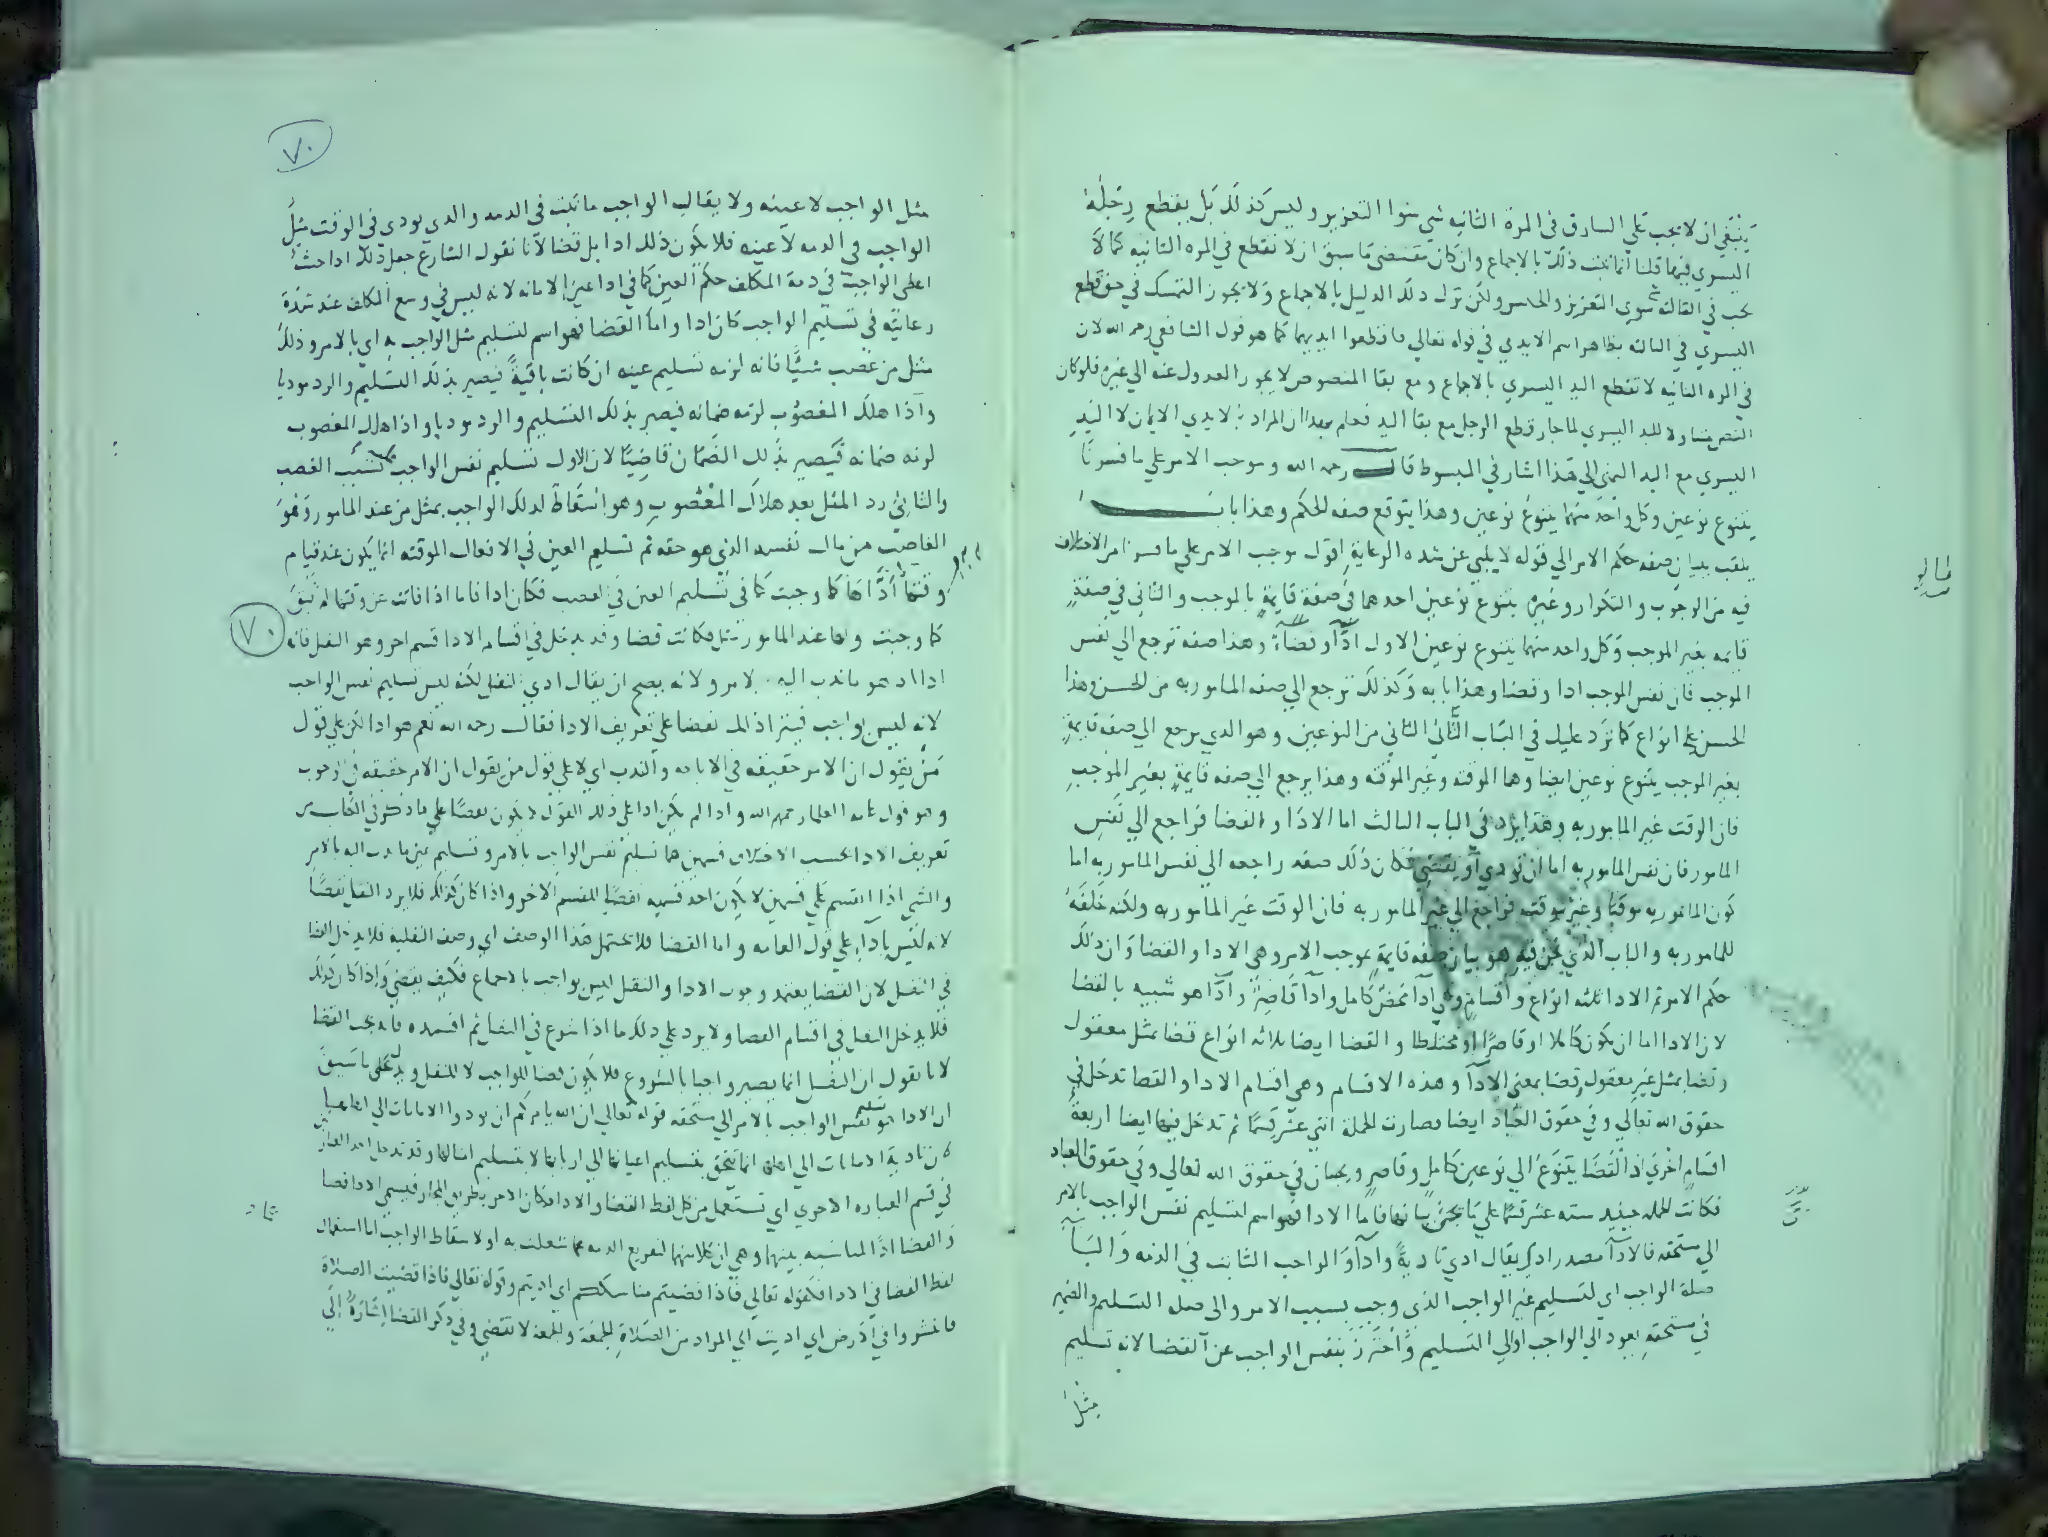 ينبغي ان لا يجب علي السارق في المرة الثانيه شي سوا التعزير وليس كذلك بل يقطع رجله
اليسري فيها قلنا انما ثبت ذلك بالاجماع وان كان مقتضي ما سبق ان لا تقطع في المره الثانيه كما لا
يجب في الثالثه سوي التعزير والحبس ولكن ترك ذلك الدليل بالاجماع ولا يجوز التمسك في حق قطع
اليسري في الثالثه بظاهر اسم الايدي في قوله تعالي فاقطعوا ايديهما كما هو قول الشافعي رحمه الله لان
في المره الثانيه لا تقطع اليد اليسري بالاجماع ومع بقا المنصوص لا يجوز العدول عنه الي غيره فلو كان
النص متناولا لليد اليسري لما جاز قطع الرجل مع بقا اليد فعلم بهذا ان المراد بالايدي الايمان لا اليد
اليسري مع اليد اليمني الي هذا اشار في المبسوط قال رحمه الله وموجب الامر علي ما فسرنا
يتنوع نوعين وكل واحد منهما يتنوع نوعين وهذا يتوقع صفه للحكم وهذا باب
يلقب ببيان صفه حكم الامر الي قوله لا ينبي عن شده الرعاية اقول موجب الامر علي ما فسرنا من الاختلاف
فيه من الوجوب والتكرار وغيره يتنوع نوعين احدهما في صفة قايمة بالموجب والثاني في صفة
قايمه بغير الموجب وكل واحد منهما يتنوع نوعين الاول اداء وقضاء وهذا صفه ترجع الي نفس
الموجب فان نفس الموجب ادا وقضا وهذا بابه وكذلك ترجع الي صفه المامور به من الحسن وهذا
الحسن علي انواع كما نزد عليك في الباب الثاني الثاني من النوعين وهو الذي يرجع الي صفه قايمة
بغير الموجب يتنوع نوعين ايضا وهما الموقته وغير الموقته وهذا يرجع الي صفه قايمة بغير الموجب
فان الوقت غير المامور به وهذا يرد في الباب الثالث اما الادا والقضا فراجع الي نفس
المامور فان نفس المامور به اما ان تودي او يقتضي فكان ذلك صفه راجعه الي نفس المامور به اما
كون المامور به موقتا وغير موقته فراجع الي غير المامور به فان الوقت غير المامور به ولكنه خلفه
للمامور به والباب الذي نحن فيه هو بيان صفه قايمة بموجب الامر وهي الادا والقضا وان ذلك
حكم الامر ثم الادا ثلثه انواع واقسام وهي ادا محض كامل وادا قاصر وادا هو شبيه بالقضا
لان الادا اما ان يكون كاملا او قاصرا او مختلطا والقضا ايضا ثلاثه انواع قضا بمثل معقول
وقضا بمثل غير معقول وقضا بمعني الادا وهذه الاقسام وهي اقسام الادا والقضا تدخل في
حقوق الله تعالي وفي حقوق العباد ايضا فصارت الجملة اثني عشر قسما ثم تدخل فيها ايضا اربعة
اقسام اخري اذ القضا يتنوع الي نوعين كامل وقاصر ويجيان في حقوق الله تعالي وفي حقوق العباد
فكانت الجمله حينيد سته عشر قسما علي ما يجي بيانها فاما الادا فهو اسم لتسليم نفس الواجب بالامر
الي مستحقه فالادا مصدر ادي يقال ادي تادية واداء والواجب الثابت في الذمه والبا
صلة الواجب اي لتسليم غير الواجب الذي وجب بسبب الامر والي صله التسليم والضمير
في مستحقه يعود الي الواجب اوالي التسليم واحترز بنفس الواجب عن القضا لانه تسليم
مثل
٧٠
مثل الواجب لا عينه ولا يقال الواجب ما ثبت في الذمه والذي يودي في الوقت مثل
الواجب في الذمه لا عينه فلا يكون ذلك ادا بل قضا لانا نقول الشارع جعل ذلك ادا حيث
اعطي الواجب في ذمة المكلف حكم العين كما في ادا عين الامانه لانه ليس في وسع المكلف عند شدة
رعايته في تسليم الواجب كان ادا واما القضا فهو اسم لتسليم مثل الواجب به اي بالامر وذلك
مثل من غصب شيا فانه لزمه تسليم عينه ان كانت باقية فيصير بذلك التسليم والرد موديا
واذا هلك المغصوب لزمه ضمانه فيصير بذلك التسليم والرد موديا واذا هلك المغصوب
لزمه ضمانه فيصير بذلك الضمان قاضيا لان الاول تسليم نفس الواجب بسبب الغصب
والثاني رد المثل بعد هلاك المغصوب وهو اسقاط لذلك الواجب بمثل من عند المامور وهو
الغاصب من مال نفسه الذي هو حقه ثم تسليم العين في الافعال الموقته انما يكون عند قيام
وقتها اداها كما وجبت كما في تسليم العين في الغصب فكان ادا فاما اذا فاتت عن وقتها لم تبق
٧٠
كما وجبت ولها عند المامور مثل فكانت قضا وقد يدخل في اقسام الادا قسم اخر وهو النفل فانه
ادا اد هو ما ندب اليه بالامر ولانه يصح ان يقال ادي النفل لكنه ليس تسليم نفس الواجب
لانه ليس بواجب فينزاد المـ نقضا علي تعريف الادا فقال رحمه الله نعم هو ادا لكن علي قول
من يقول ان الامر حقيقه في الاباحه والندب اي لا علي قول من يقول ان الامر حقيقه في الوجوب
وهو قول عامه العلما رحمهم الله واذا لم يكن ادا علي ذلك القول لا يكون نقضا علي ما ذكر في الكتاب
تعريف الادا بحسب الاختلاف قسمين هما تسليم نفس الواجب بالامر وتسليم عين ما ندب اليه بالامر
والشي اذا انقسم علي قسمين لا يكون احد قسميه نقضا للقسم الاخر واذا كان كذلك فلا يرد النفل نقضا
لانه ليس باداء علي قول العامه واما القضا فلا يحتمل هذا الوصف اي وصف النفليه فلا يدخل القضا
في النفل لان القضا يعتمد وجوب الادا والنفل ليس بواجب بالاجماع فكيف يقضي واذا كان كذلك
فلا يدخل النفل في اقسام القضا ولا يرد علي ذلك ما اذا شرع في النفل ثم افسده فانه يجب القضا
لانا نقول ان النفل انما يصير واجبا بالشروع فلا يكون قضا للواجب لا للنفل ويدل علي ما سبق
ان الادا هو تسليم نفس الواجب بالامر الي مستحقه قوله تعالي ان الله يامركم ان تودوا الامانات الي اهلها
كان تادية الامانات الي اهلها انما يتحقق بتسليم اعيانها الي اربابها لا بتسليم امثالها وقد تدخل احد العبارتين
في قسم العباره الاخري اي تستعمل من كل لفظ القضا والادا مكان الاخر بطريق المجاز فيسمي الادا قضا
والقضا اداً لمناسبه بينهما وهي ان كلا منهما لتفريغ الذمه عما شغلت به او لاسقاط الواجب اما استعمال
لفظ القضا في الادا فكقوله تعالي فاذا قضيتم مناسككم اي اديتم وقوله تعالي فاذا قضيت الصلاة
فانتشروا في الارض اي اديت اي المراد من الصلاة الجمعة والجمعة لا تقضي وفي ذكر القضا اشارة الي